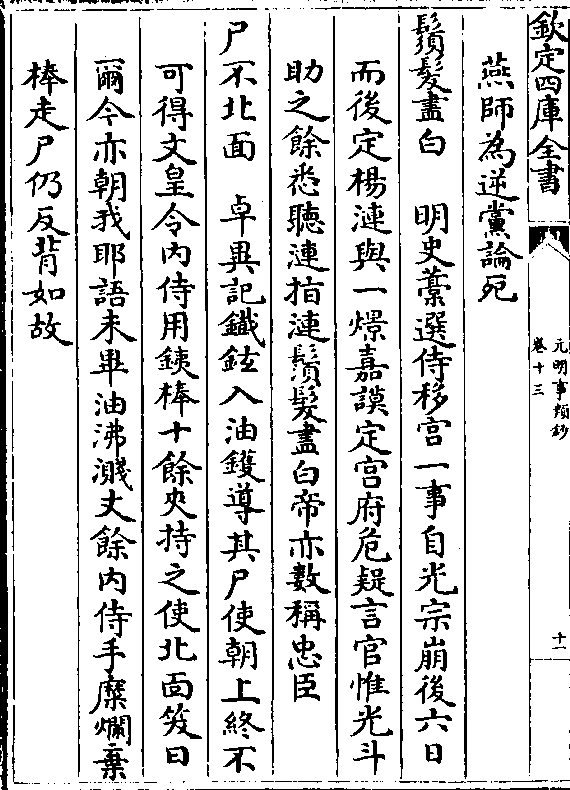 欽定四庫全書
元明事類鈔
卷十三
十一
燕師為逆黨論死
鬚髮盡白　明史藁選侍移宮一事自光宗崩後六日
而後定楊漣與一燝嘉謨定宫府危疑言官惟光斗
助之餘悉聽漣指漣鬚髮盡白帝亦數稱忠臣
尸不北面　卓異記鐵鉉入油鑊導其尸使朝上終不
可得文皇令内侍用鐵棒十餘夾持之使北面笑曰
爾今亦朝我耶語未畢油沸濺丈餘内侍手糜爛棄
棒走尸仍反背如故